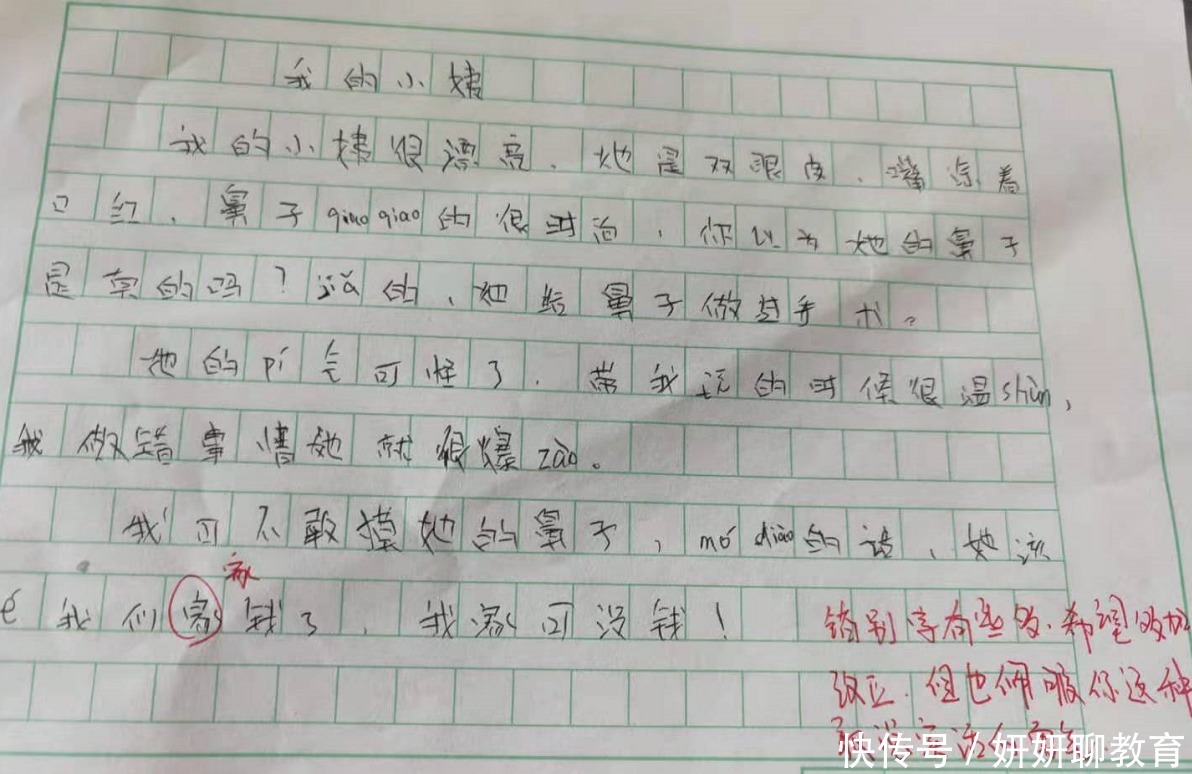 我的小姨
我的小姨很漂亮，她是双眼皮，嘴涂着
口红，鼻子qiao qiao的很时治，你以为她的鼻子
是真的吗？jiǎ的，她给鼻子做过手术。
她的pí气可怪了，带我玩的时候很温shùn，
我做错事情她就很爆zào。
我可不敢摸她的鼻子，mó diào的话，她该
é我们家钱了，我家可没钱！
家
错别字有些多，希望
改正，但也佩服你这种
快传号 / 妍妍聊教育